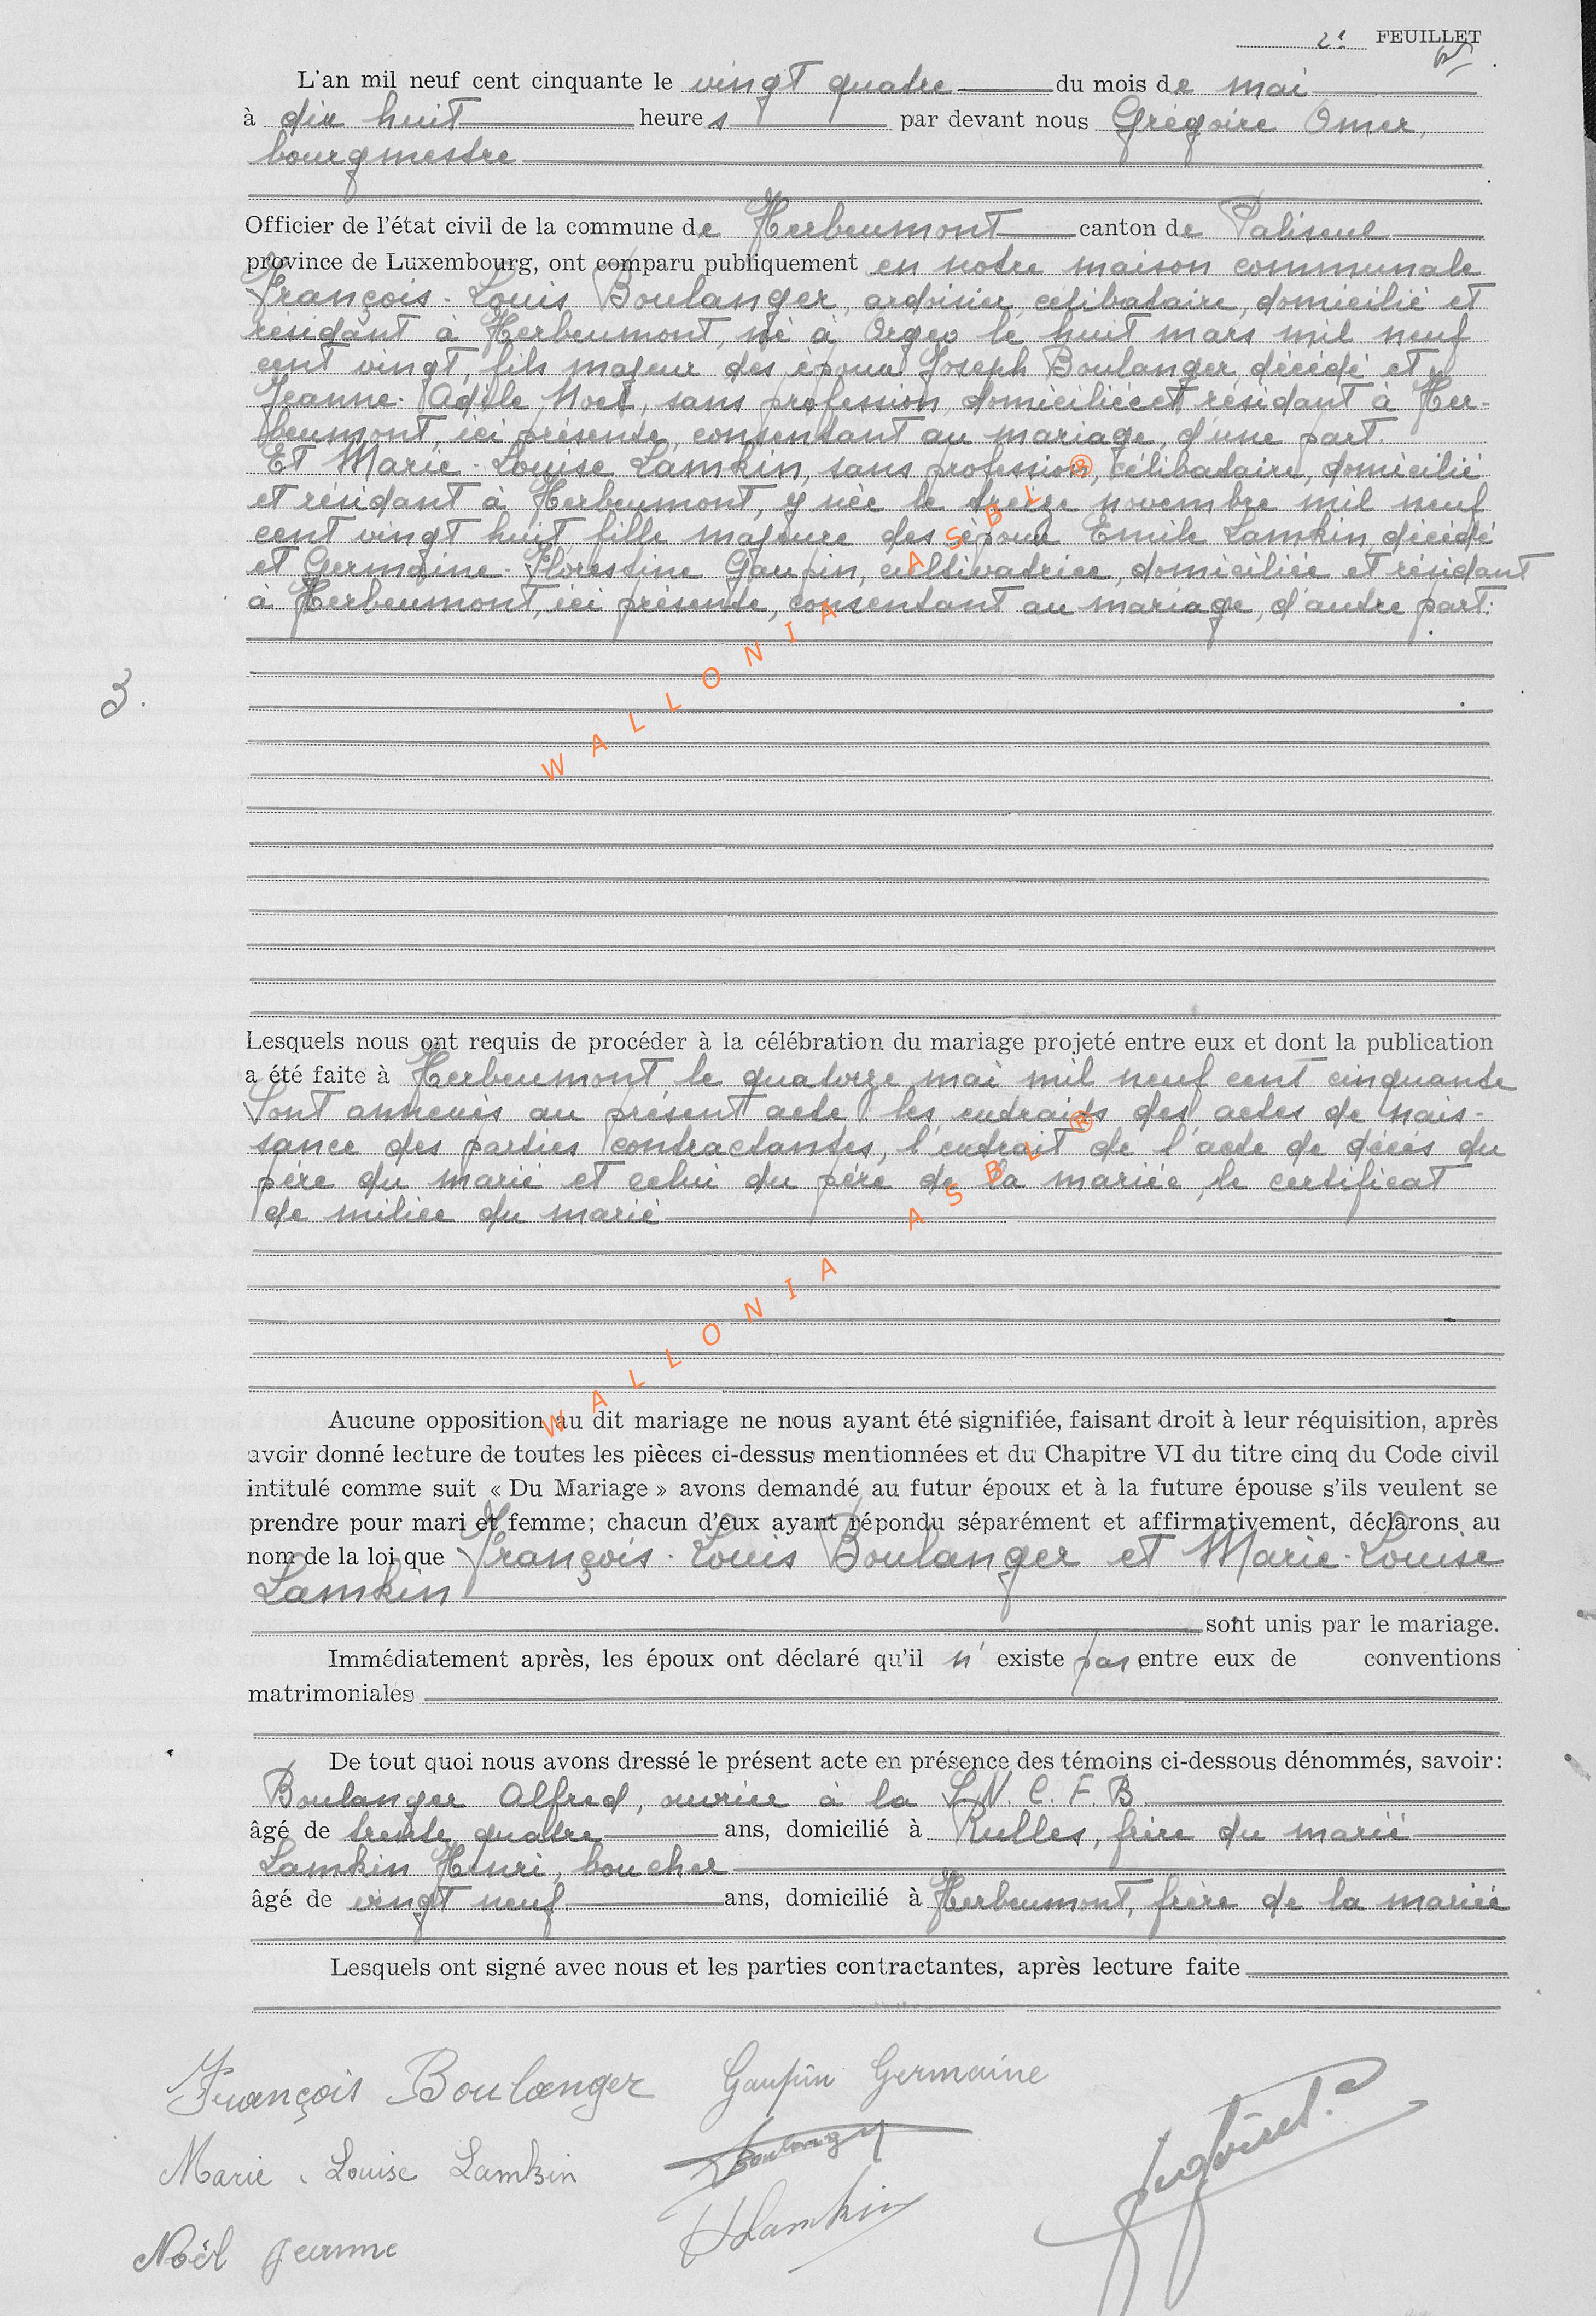 2e FEUILLET
L'an mil neuf cent cinquante le vingt quatre du mois de mai
à dix huit heures par devant nous Grégoire Omer,
bourgmestre
Officier de l'état civil de la commune de Herbeumont canton de Paliseul
province de Luxembourg, ont comparu publiquement en notre maison communale
François-Louis Boulanger, ardoisier, célibataire, domicilié et
résidant à Herbeumont, né à Orgeo le huit mars mil neuf
cent vingt, fils majeur des époux Joseph Boulanger, décédé et
Jeanne-Adèle Noël, sans profession, domiciliée et résidant à Her-
beumont, ici présente, consentant au mariage, d'une part.
Et Marie-Louise Lamkin, sans profession, célibataire, domicilié
et résidant à Herbeumont, y née le treize novembre mil neuf
cent vingt huit fille majeure des époux Emile Lamkin, décédé
et Germaine-Florestine Gaupin, cultivatrice, domiciliée et résidant
à Herbeumont, ici présente, consentant au mariage, d'autre part.
3.
WALLONIA ASBL ®
Lesquels nous ont requis de procéder à la célébration du mariage projeté entre eux et dont la publication
a été faite à Herbeumont, le quatorze mai mil neuf cent cinquante
Sont annexés au présent acte les extraits des actes de nais-
sance des parties contractantes, l'extrait de l'acte de décès du
père du marié et celui du père de la mariée, le certificat
de milice du marié
WALLONIA ASBL ®
Aucune opposition au dit mariage ne nous ayant été signifiée, faisant droit à leur réquisition, après
avoir donné lecture de toutes les pièces ci-dessus mentionnées et du Chapitre VI du titre cinq du Code civil
intitulé comme suit « Du Mariage » avons demandé au futur époux et à la future épouse s'ils veulent se
prendre pour mari et femme; chacun d'eux ayant répondu séparément et affirmativement, déclarons au
nom de la loi que François-Louis Boulanger et Marie-Louise
Lamkin
sont unis par le mariage.
Immédiatement après, les époux ont déclaré qu'il n' existe pas entre eux de conventions
matrimoniales
De tout quoi nous avons dressé le présent acte en présence des témoins ci-dessous dénommés, savoir:
Boulanger Alfred, ouvrier à la S.N.C.F.B
âgé de trente quatre ans, domicilié à Rulles, frère du marié
Lamkin Henri, boucher
âgé de vingt neuf ans, domicilié à Herbeumont, frère de la mariée
Lesquels ont signé avec nous et les parties contractantes, après lecture faite
François Boulanger Gaupin Germaine
Marie-Louise Lamkin Boulanger
Noël Jeanne HLamkin